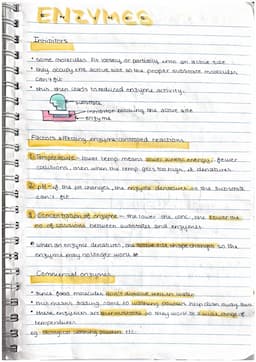 ENZYMES
Inhibitors
• some molecules fit loosely or partially into an active site
• they occupy the active site so the proper substrate molecules
can't fit
• this then leads to reduced enzyme activity.
substrate
inhibitor blocking the active site
enzyme
Factors affecting enzyme-controlled reactions
1. Temperature - lower temp means lower kinetic energy - fewer
collisions, then when the temp gets too high, it denatures
2. pH - if the pH changes, the enzyme denatures so the substrate
can't fit
3. Concentration of enzyme - the lower the conc, the fewer the
no. of collisions between substrates and enzymes
• when an enzyme denatures, the active site shape changes so the
enzyme may no longer work
Commercial enzymes
• since food molecules don't dissolve well in water
• this means adding some to washing powders help clean away
• these enzymes are so they work to a wide range of
temperatures
eg. biological washing powder etc.